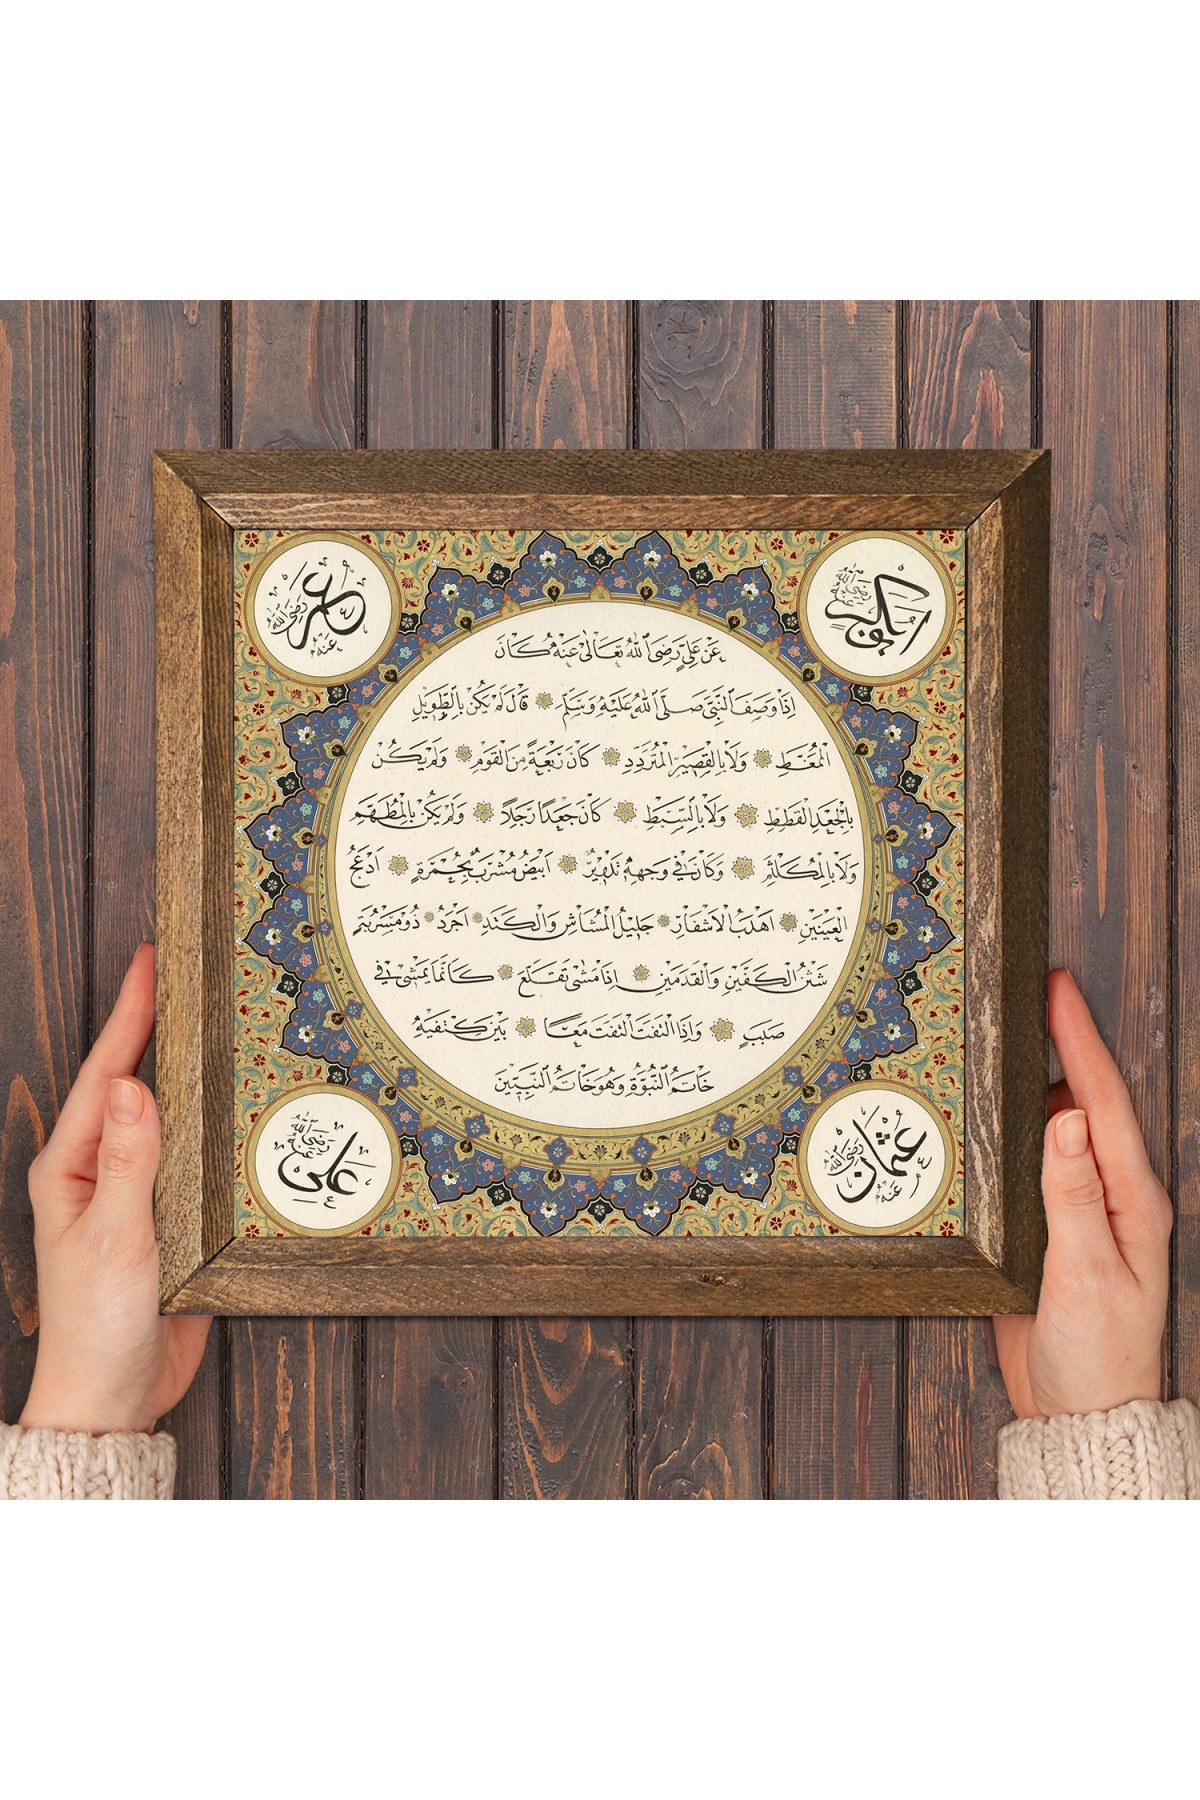 ابوبكر رضى الله عنه
عمر رضى الله عنه
عَنْ عَلِيٍّ رَضِىَ اللّٰهُ تَعَالٰى عَنْهُ كَانَ
اِذَا وَصَفَ النَّبِىَّ صَلَّى اللّٰهُ عَلَيْهِ وَسَلَّمَ قَالَ لَمْ يَكُنْ بِالطَّوِيلِ
الْمُمَّغِطِ وَلَا بِالْقَصِيرِ الْمُتَرَدِّدِ كَانَ رَبْعَةً مِنَ الْقَوْمِ وَلَمْ يَكُنْ
بِالْجَعْدِ الْقَطَطِ وَلَا بِالسَّبِطِ كَانَ جَعْدًا رَجِلًا وَلَمْ يَكُنْ بِالْمُطَهَّمِ
وَلَا بِالْمُكَلْثَمِ وَكَانَ فِى وَجْهِهِ تَدْوِيرٌ اَبْيَضُ مُشْرَبٌ بِحُمْرَةٍ اَدْعَجُ
الْعَيْنَيْنِ اَهْدَبُ الْاَشْفَارِ جَلِيلُ الْمُشَاشِ وَالْكَتَدِ اَجْرَدُ ذُو مَسْرُبَةٍ
شَثْنُ الْكَفَّيْنِ وَالْقَدَمَيْنِ اِذَا مَشٰى تَقَلَّعَ كَاَنَّمَا يَمْشِى فِى
صَبَبٍ وَاِذَا الْتَفَتَ الْتَفَتَ مَعًا بَيْنَ كَتِفَيْهِ
خَاتَمُ النُّبُوَّةِ وَهُوَ خَاتَمُ النَّبِيِّينَ
عثمان رضى الله عنه
على رضى الله عنه